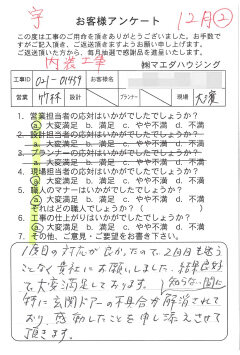 字
12月②
お客様アンケート
この度は工事のご用命を頂きありがとうございました。お手数で
すがご記入頂き、ご返送頂きますようお願い申し上げます。
ご返送頂いた方から、毎月抽選で感謝品を進呈致します。
内装工事
㈱マエダハウジング
工事ID 021-01459 お客様名
営業 竹林 設計 プランナー 現場 大濱
1. 営業担当者の応対はいかがでしたでしょうか?
a 大変満足 b. 満足 c. やや不満 d. 不満
2. 設計担当者の応対はいかがでしたでしょうか?
a. 大変満足 b. 満足 c. やや不満 d. 不満
3. プランナーの応対はいかがでしたでしょうか?
a. 大変満足 b. 満足 c. やや不満 d. 不満
4. 現場担当者の応対はいかがでしたでしょうか?
a 大変満足 b. 満足 c. やや不満 d. 不満
5. 職人のマナーはいかがでしたでしょうか?
a 大変満足 b. 満足 c. やや不満 d. 不満
それはどの職人でしょうか?( )
6. 工事の仕上がりはいかがでしたでしょうか?
a 大変満足 b. 満足 c. やや不満 d. 不満
7. その他、ご意見・ご要望をお書き下さい。
1度目の対応が良かったので、2回目も迷う
ことなく貴社にお願いしました。結果良好
で大変満足しております。知らない間に
特に玄関ドアーの不具合が解消されて
おり、感動したことを申し添えさせて
頂きます。